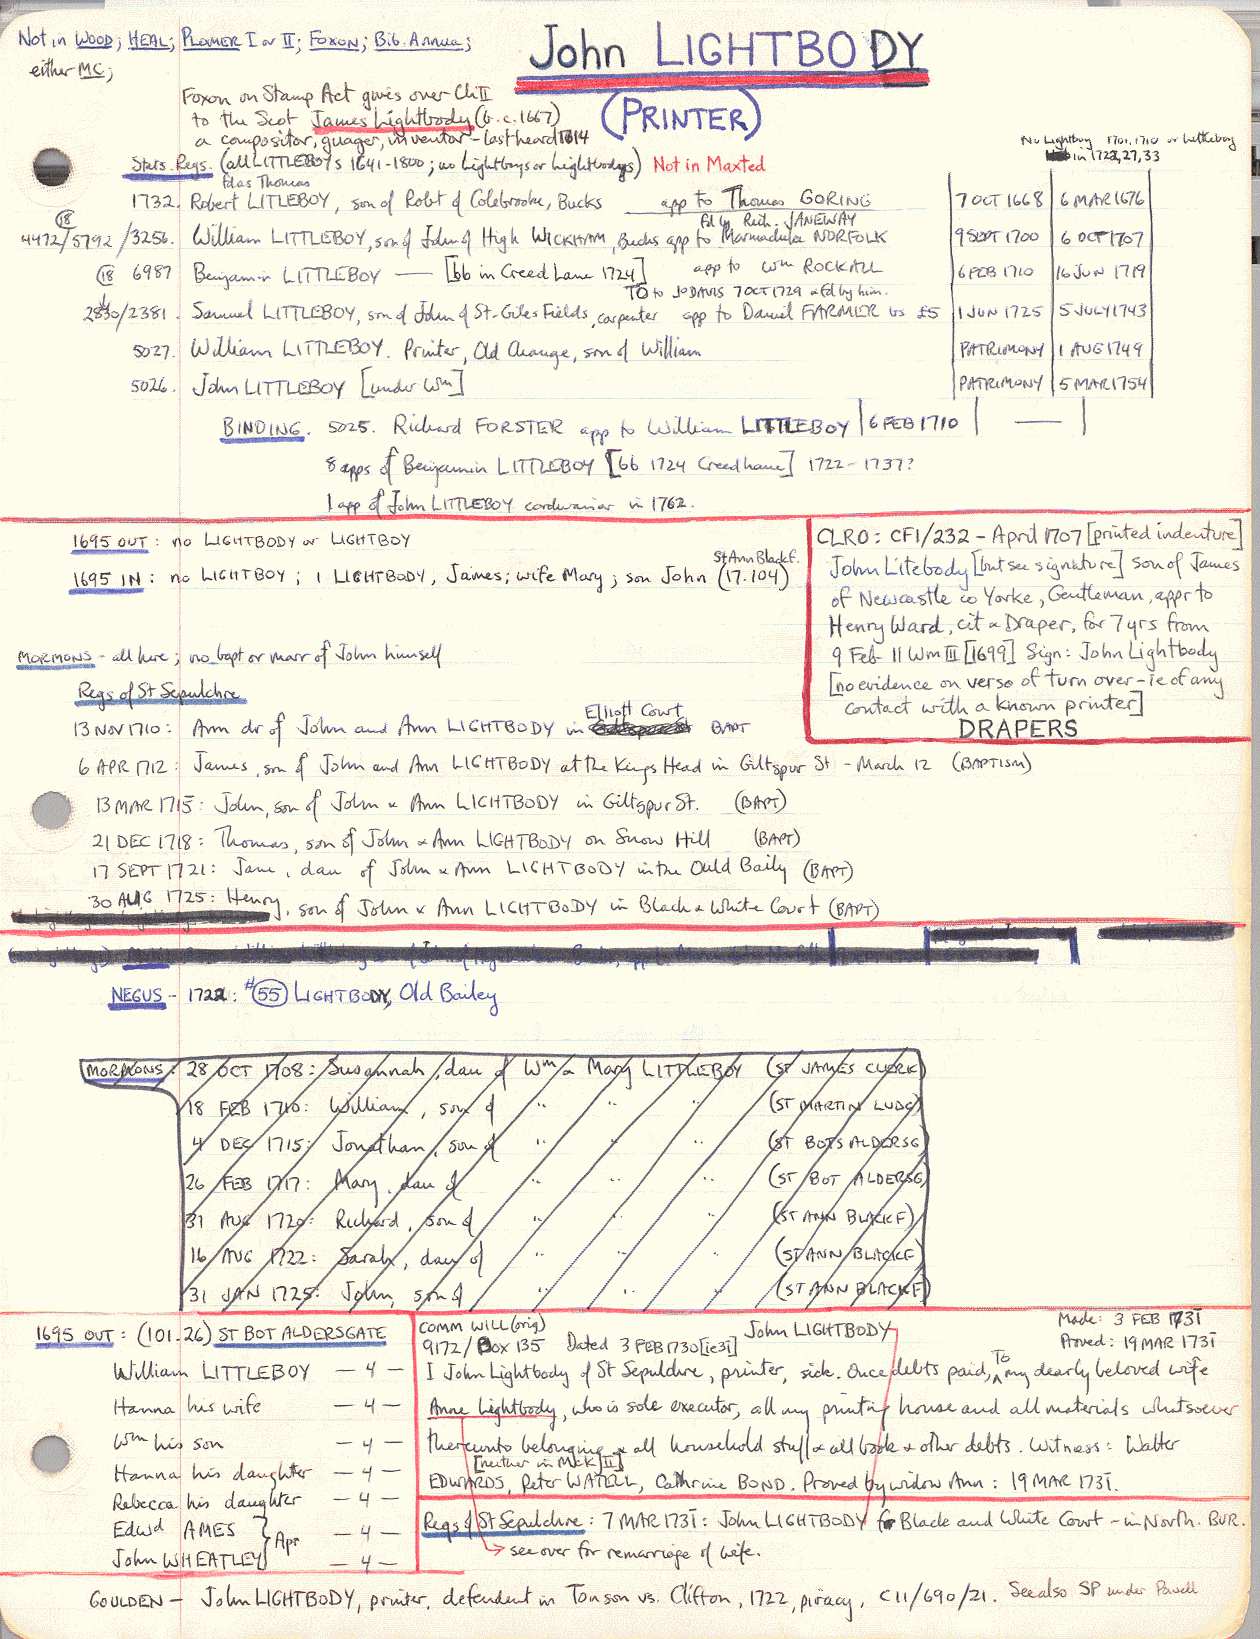 Not in WOOD; HEAL; PLOMER I or II; FOXON; Bib. Annua;
either MC;
John LIGHTBODY
(PRINTER)
Foxon on Stamp Act gives over Ch II
to the Scot James Lightbody (b.c.1667)
a compositor, guager, inventor - last heard 1614
No Lightboy 1701, 1710 or Littleboy
in 1722, 27, 33
Stats. Regs. (all LITTLEBOYs 1641-1800; no Lightboys or Lightbodys) Not in Maxted
Thomas
1732. Robert LITTLEBOY, son of Robt of Colebrooke, Bucks app to Thomas GORING 7 OCT 1668 6 MAR 1676
Fd by Rich. JANEWAY
(18)
4472/5792/3256. William LITTLEBOY, son of John of High WICKHAM, Bucks app to Marmaduke NORFOLK 9 SEPT 1700 6 OCT 1707
(18) 6987 Benjamin LITTLEBOY — [bb in Creed Lane 1724] app to Wm ROCKALL 6 FEB 1710 16 JUN 1719
TO to JO DAVIS 7 OCT 1729 & Fd by him.
2830/2381. Samuel LITTLEBOY, son of John of St. Giles Fields, carpenter app to Daniel FARMER bs £5 1 JUN 1725 5 JULY 1743
5027. William LITTLEBOY. Printer, Old Change, son of William PATRIMONY 1 AUG 1749
5026. John LITTLEBOY [under Wm] PATRIMONY 5 MAR 1754
BINDING. 5025. Richard FORSTER app to William LITTLEBOY 6 FEB 1710 —
8 apps of Benjamin LITTLEBOY [bb 1724 Creed Lane] 1722-1737?
1 app of John LITTLEBOY cordwainer in 1762.
1695 OUT: no LIGHTBODY or LIGHTBOY
St Ann Blackf.
1695 IN: no LIGHTBOY; 1 LIGHTBODY, James; wife Mary; son John (17.104)
CLRO: CF1/232 - April 1707 [printed indenture]
John Litebody [but see signature] son of James
of Newcastle co Yorke, Gentleman, appr to
Henry Ward, cit & Draper, for 7 yrs from
9 Feb 11 Wm III [1699] Sign: John Lightbody
[no evidence on verso of turn over - ie of any
contact with a known printer]
DRAPERS
MORMONS - all here; no bapt or marr of John himself
Regs of St Sepulchre
Elliott Court
13 NOV 1710: Ann dr of John and Ann LIGHTBODY in BAPT
6 APR 1712: James, son of John and Ann LIGHTBODY at the Kings Head in Giltspur St - March 12 (BAPTISM)
13 MAR 1715: John, son of John & Ann LIGHTBODY in Giltspur St. (BAPT)
21 DEC 1718: Thomas, son of John & Ann LIGHTBODY on Snow Hill (BAPT)
17 SEPT 1721: Jane, dau of John & Ann LIGHTBODY in the Ould Baily (BAPT)
30 AUG 1725: Henry, son of John & Ann LIGHTBODY in Black & White Court (BAPT)
NEGUS - 1722: #55 LIGHTBODY, Old Bailey
MORMONS: 28 OCT 1708: Susannah, dau of Wm & Mary LITTLEBOY (ST JAMES CLERK)
18 FEB 1710: William, son of " " " (ST MARTIN LUDG)
4 DEC 1715: Jonathan, son of " " " (ST BOTS ALDERSG)
26 FEB 1717: Mary, dau of " " " (ST BOT ALDERSG)
31 AUG 1720: Richard, son of " " " (ST ANN BLACKF)
16 AUG 1722: Sarah, dau of " " " (ST ANN BLACKF)
31 JAN 1725: John, son of " " " (ST ANN BLACKF)
1695 OUT: (101.26) ST BOT ALDERSGATE
William LITTLEBOY — 4 —
Hanna his wife — 4 —
Wm his son — 4 —
Hanna his daughter — 4 —
Rebecca his daughter — 4 —
Edwd AMES } Apr — 4 —
John WHEATLEY — 4 —
COMM WILL (orig) John LIGHTBODY Made: 3 FEB 1731
9172/Box 135 Dated 3 FEB 1730 [ie 31] Proved: 19 MAR 1731
I John Lightbody of St Sepulchre, printer, sick. Once debts paid, To my dearly beloved wife
Anne Lightbody, who is sole executor, all my printing house and all materials whatsoever
thereunto belonging & all household stuff & all book & other debts. Witness: Walter
[neither in McK II]
EDWARDS, Peter WATELL, Cathrine BOND. Proved by widow Ann: 19 MAR 1731.
Regs of St Sepulchre: 7 MAR 1731: John LIGHTBODY fr Black and White Court - in North. BUR.
see over for remarriage of wife.
GOULDEN - John LIGHTBODY, printer, defendent in Tonson vs. Clifton, 1722, piracy, C11/690/21. See also SP under Powell